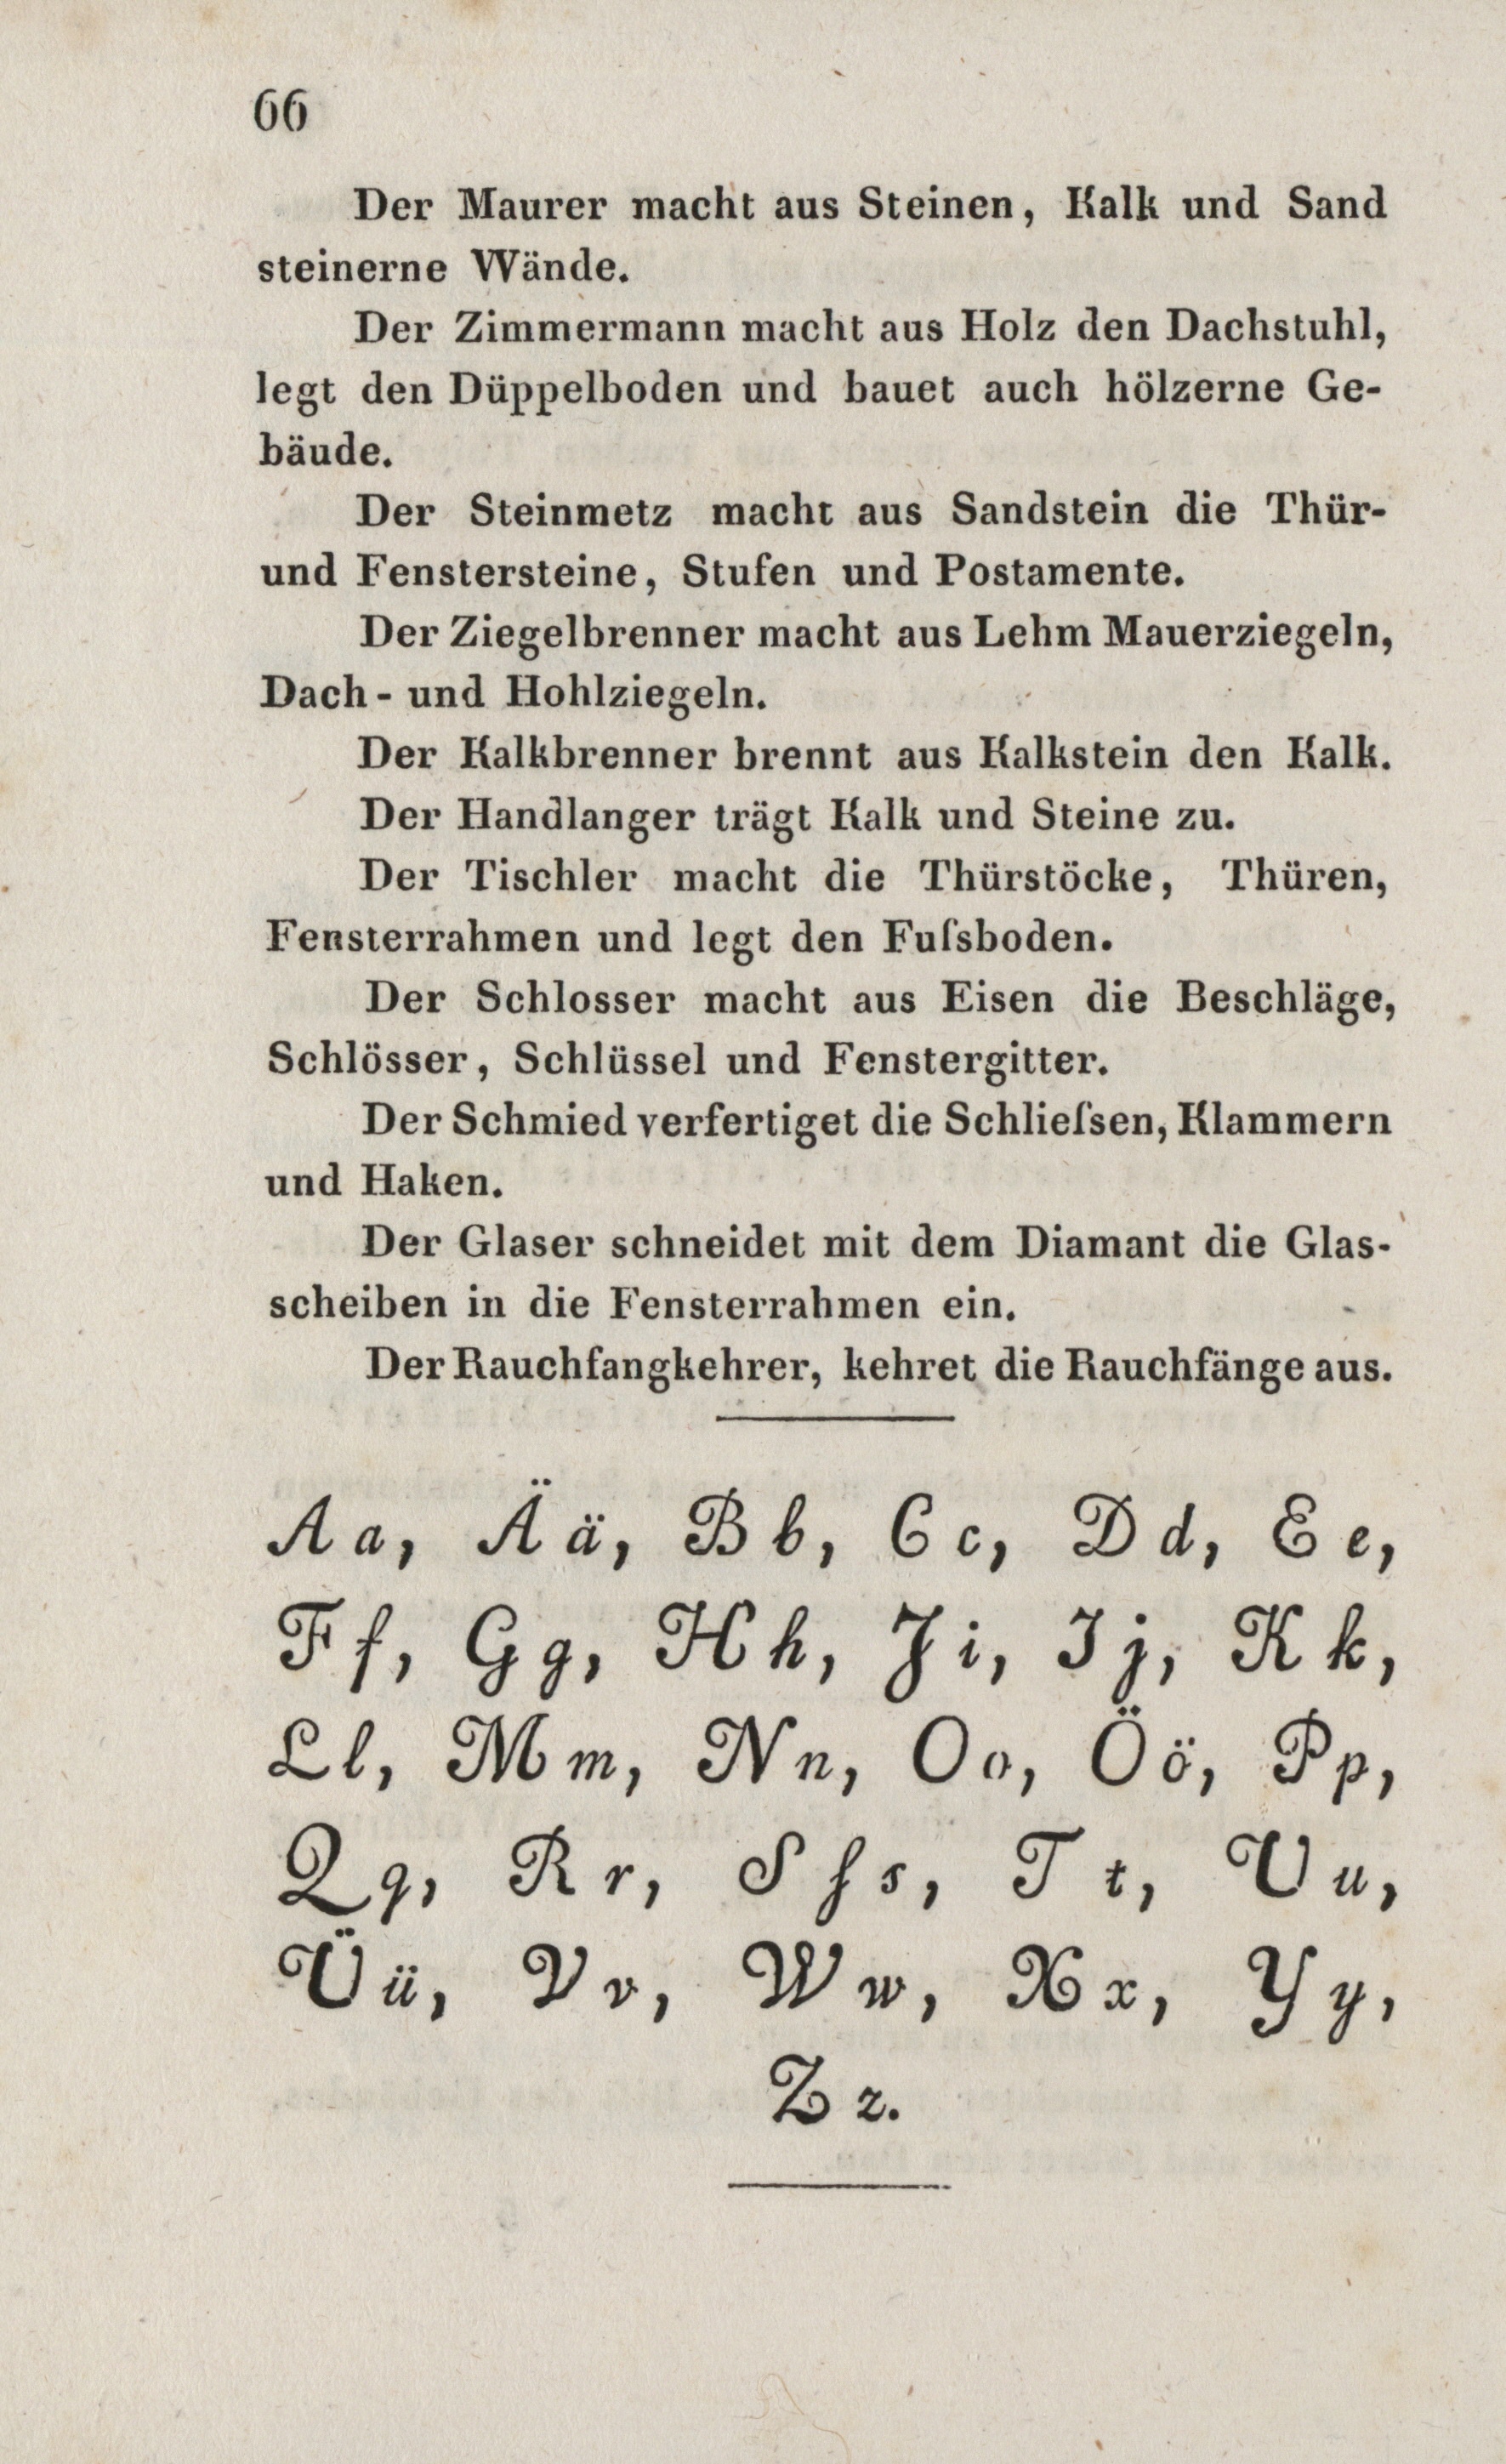 66
Der Maurer macht aus Steinen, Kalk und Sand
steinerne Wände.
Der Zimmermann macht aus Holz den Dachstuhl,
legt den Düppelboden und bauet auch hölzerne Ge-
bäude.
Der Steinmetz macht aus Sandstein die Thür-
und Fenstersteine, Stufen und Postamente.
Der Ziegelbrenner macht aus Lehm Mauerziegeln,
Dach- und Hohlziegeln.
Der Kalkbrenner brennt aus Kalkstein den Kalk.
Der Handlanger trägt Kalk und Steine zu.
Der Tischler macht die Thürstöcke, Thüren,
Fensterrahmen und legt den Fuſsboden.
Der Schlosser macht aus Eisen die Beschläge,
Schlösser, Schlüssel und Fenstergitter.
Der Schmied verfertiget die Schlieſsen, Klammern
und Haken.
Der Glaser schneidet mit dem Diamant die Glas-
scheiben in die Fensterrahmen ein.
Der Rauchfangkehrer, kehret die Rauchfänge aus.
A a, Ä ä, B b, C c, D d, E e,
F f, G g, H h, J i, J j, K k,
L l, M m, N n, O o, Ö ö, P p,
Q q, R r, S ſ s, T t, U u,
Ü ü, V v, W w, X x, Y y,
Z z.